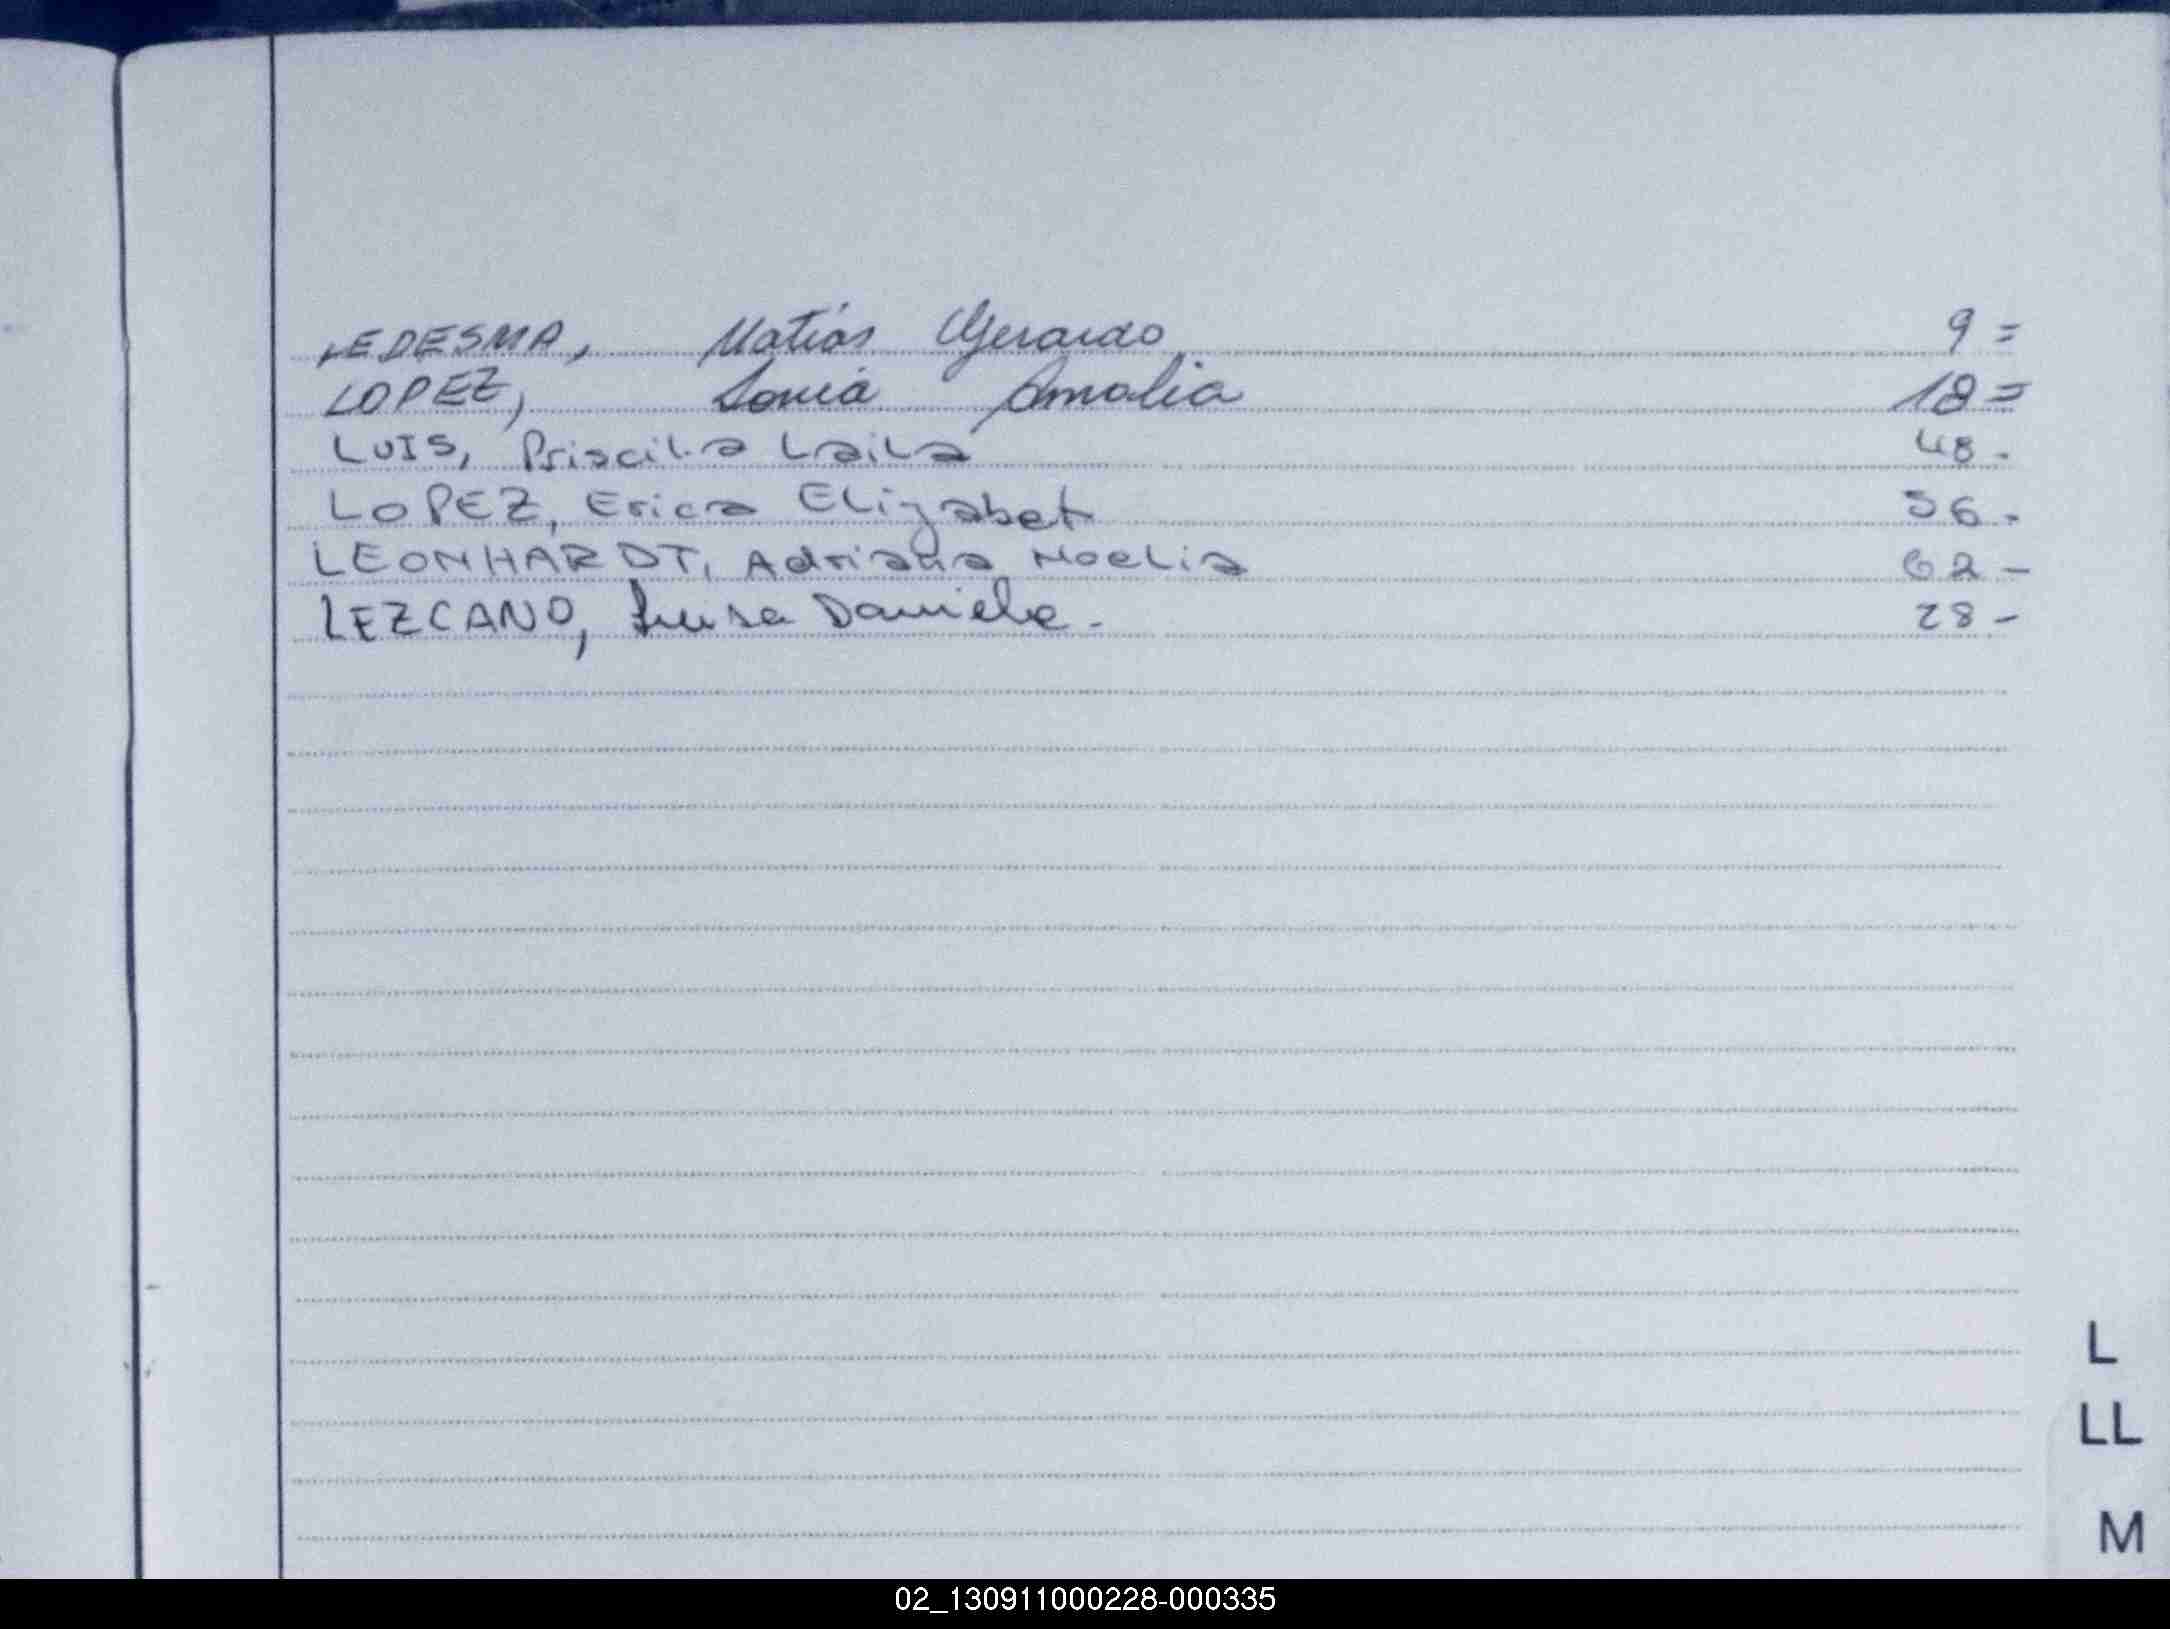 LEDESMA, Matías Gerardo 9 =
LOPEZ, Sonia Amalia 18 =
LUIS, Priscila Laila 48 .
LOPEZ, Erica Elizabet 56 .
LEONHARDT, Adriana Noelia 62 -
LEZCANO, Luisa Daniela . 28 -
L
LL
M
02_130911000228-000335